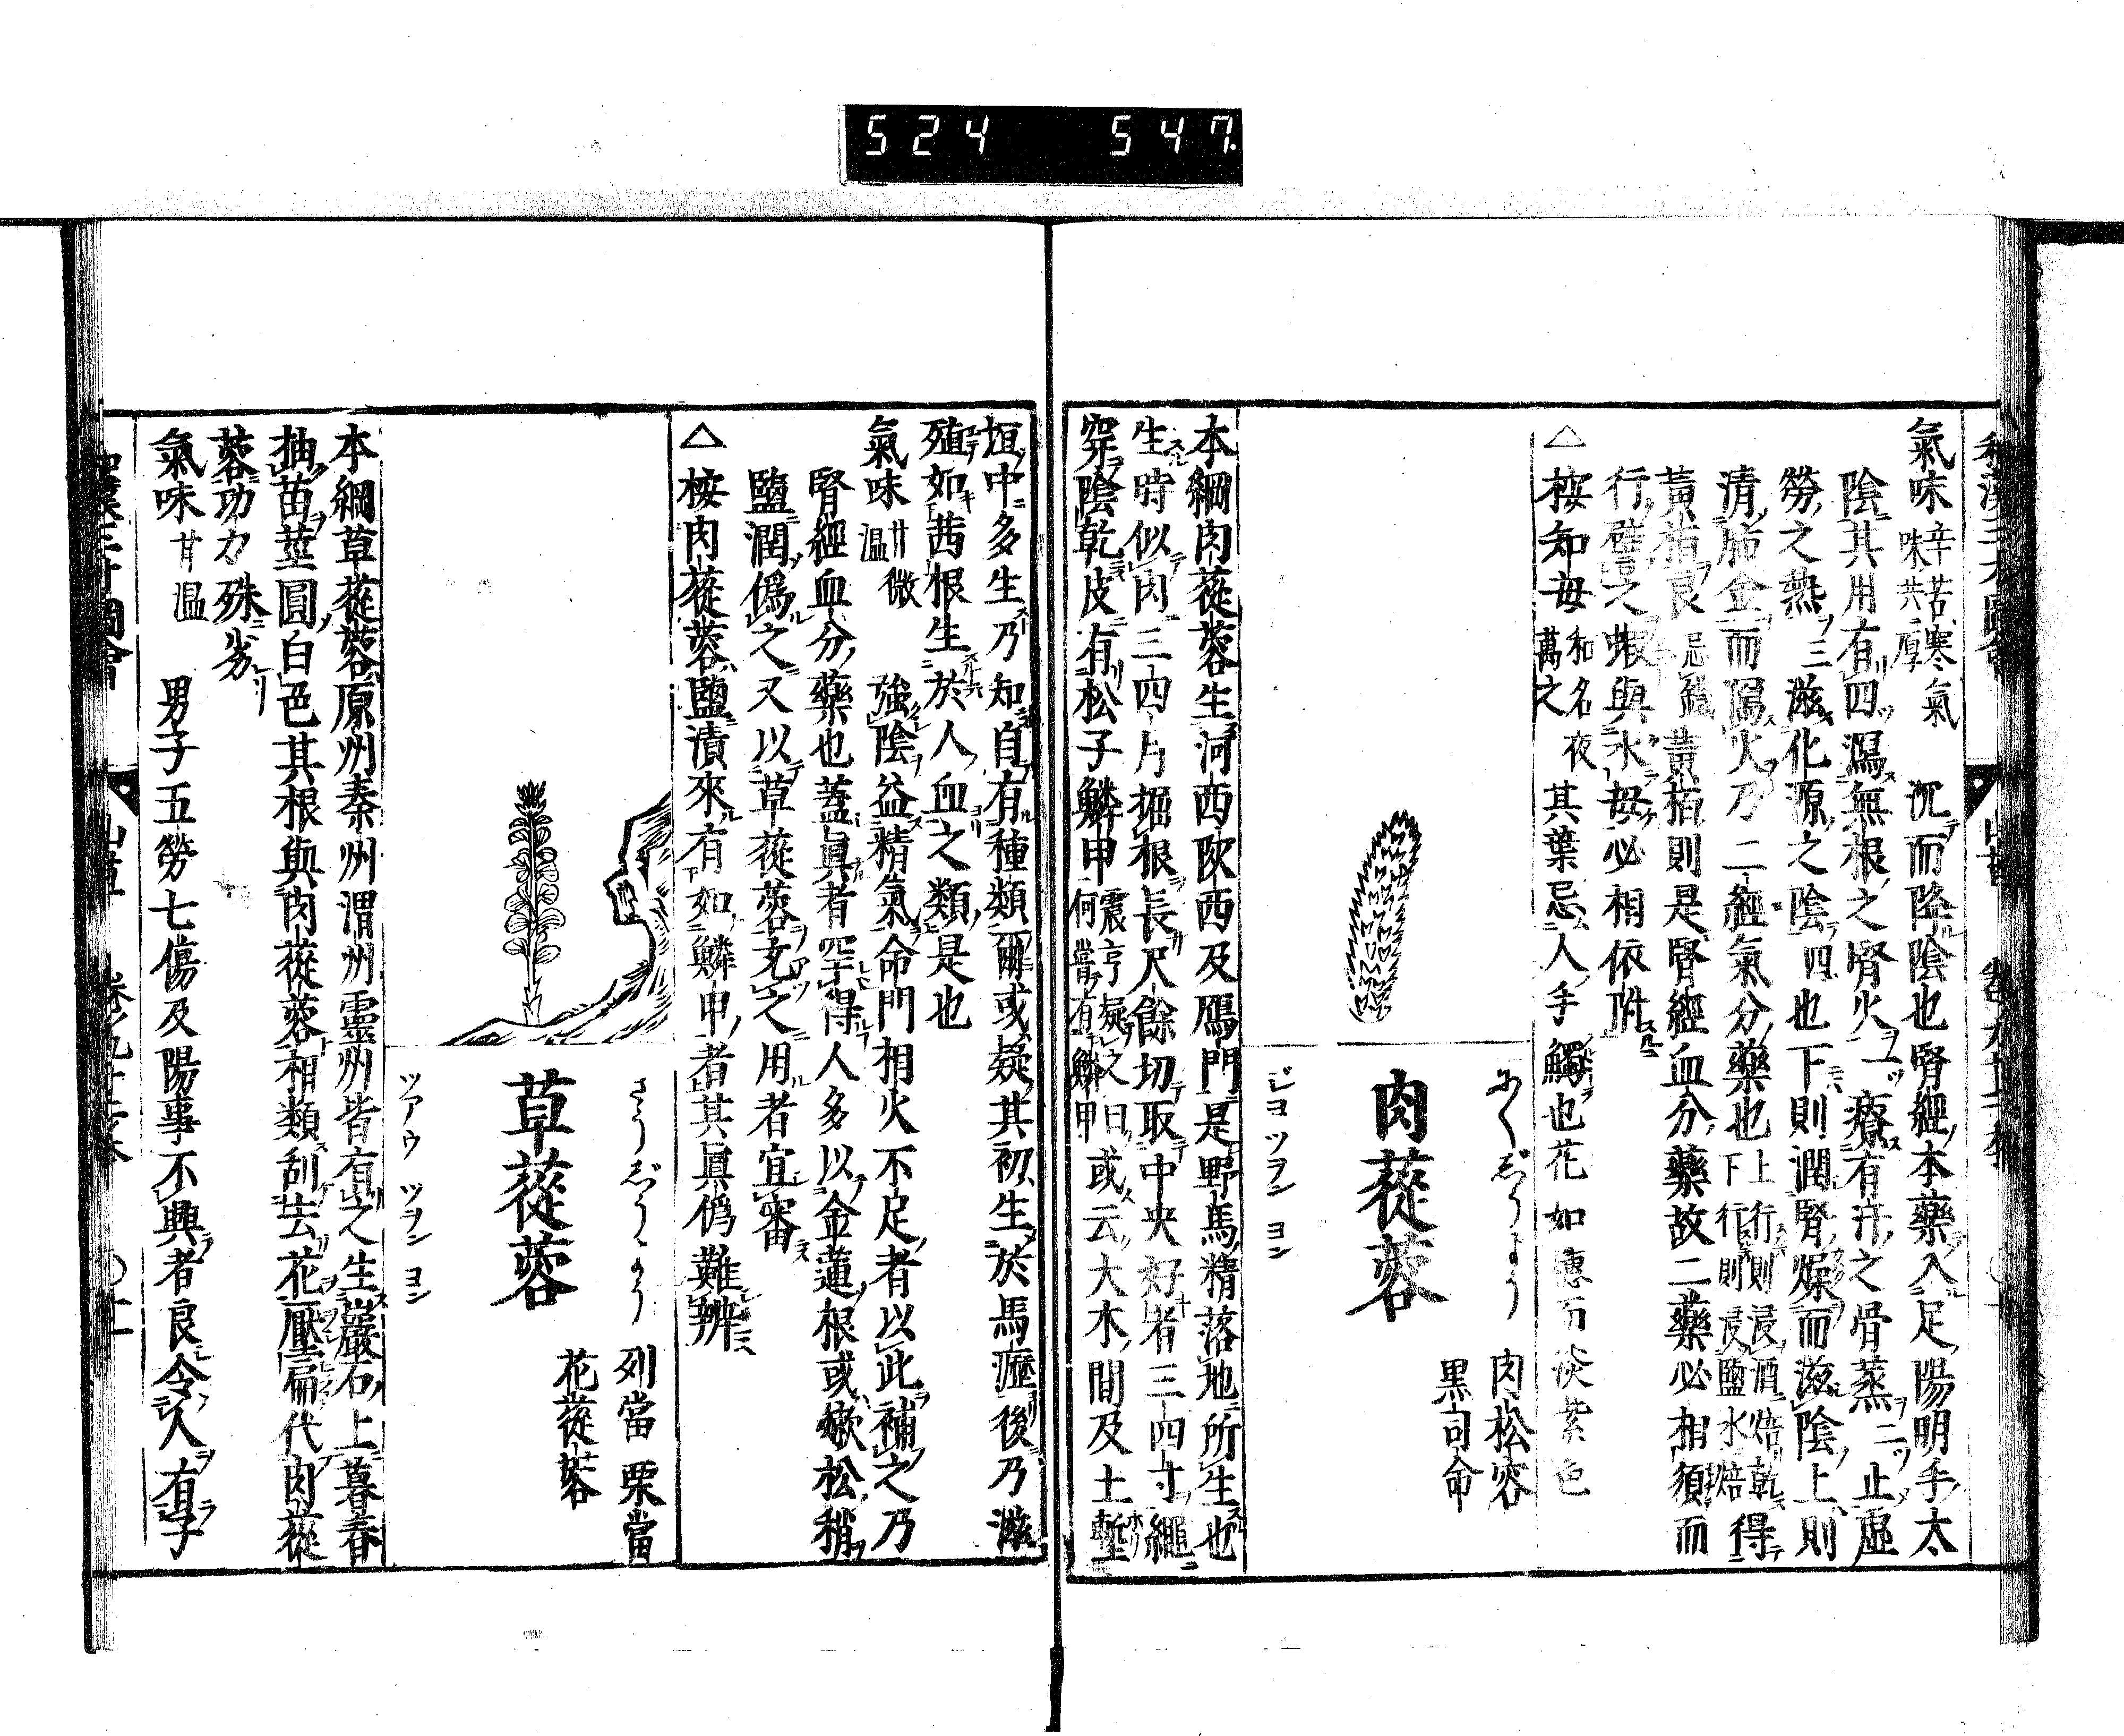 524 547
氣味 辛苦寒氣味共厚 沉而降陰也腎經本藥入足陽明手太
陰其用有四瀉無根之腎火一療有汗之骨蒸二止虛
勞之熱三滋化源之陰四也下則潤腎燥而滋陰上則
清肺金而瀉火乃二經氣分藥也上行則浸酒焙乾下行則浸鹽水焙得
黃栢良忌鐵黃栢則是腎經血分藥故二藥必相須而
行譬之蝦與水母必相依附
△按知母和名夜萬之其葉忌人手觸也花如 而淡紫色
にくじうよう
肉蓯蓉
肉松容
黒司命
ジヨツヲン ヨン
本綱肉蓯蓉生河西陜西及鴈門是野馬精落地所生也
生時似肉三四月掘根長尺餘切取中央好者三四寸繩
穿陰乾皮有松子鱗甲震亨疑之曰何嘗有鱗甲或云大木間及土塹
垣中多生乃知自有種類爾或疑其初生於馬瀝後乃滋
殖如茜根生於人血之類是也
氣味甘微溫 強陰益精氣命門相火不足者以此補之乃
腎經血分藥也蓋眞者罕得人多以金蓮根或嫩松稍
鹽潤僞之又以草蓯蓉充之用者宜審
△按肉蓯蓉鹽漬來有如鱗甲者其眞僞難辨
さうじうよう
草蓯蓉
列當 栗當
花蓯蓉
ツアウ ツヲン ヨン
本綱草蓯蓉原州秦州渭州靈州皆有之生巖石上暮春
抽苗莖圓白色其根與肉蓯蓉相類刮去花壓扁代肉蓯
蓉功力殊劣
氣味甘溫 男子五勞七傷及陽事不興者良令人有子